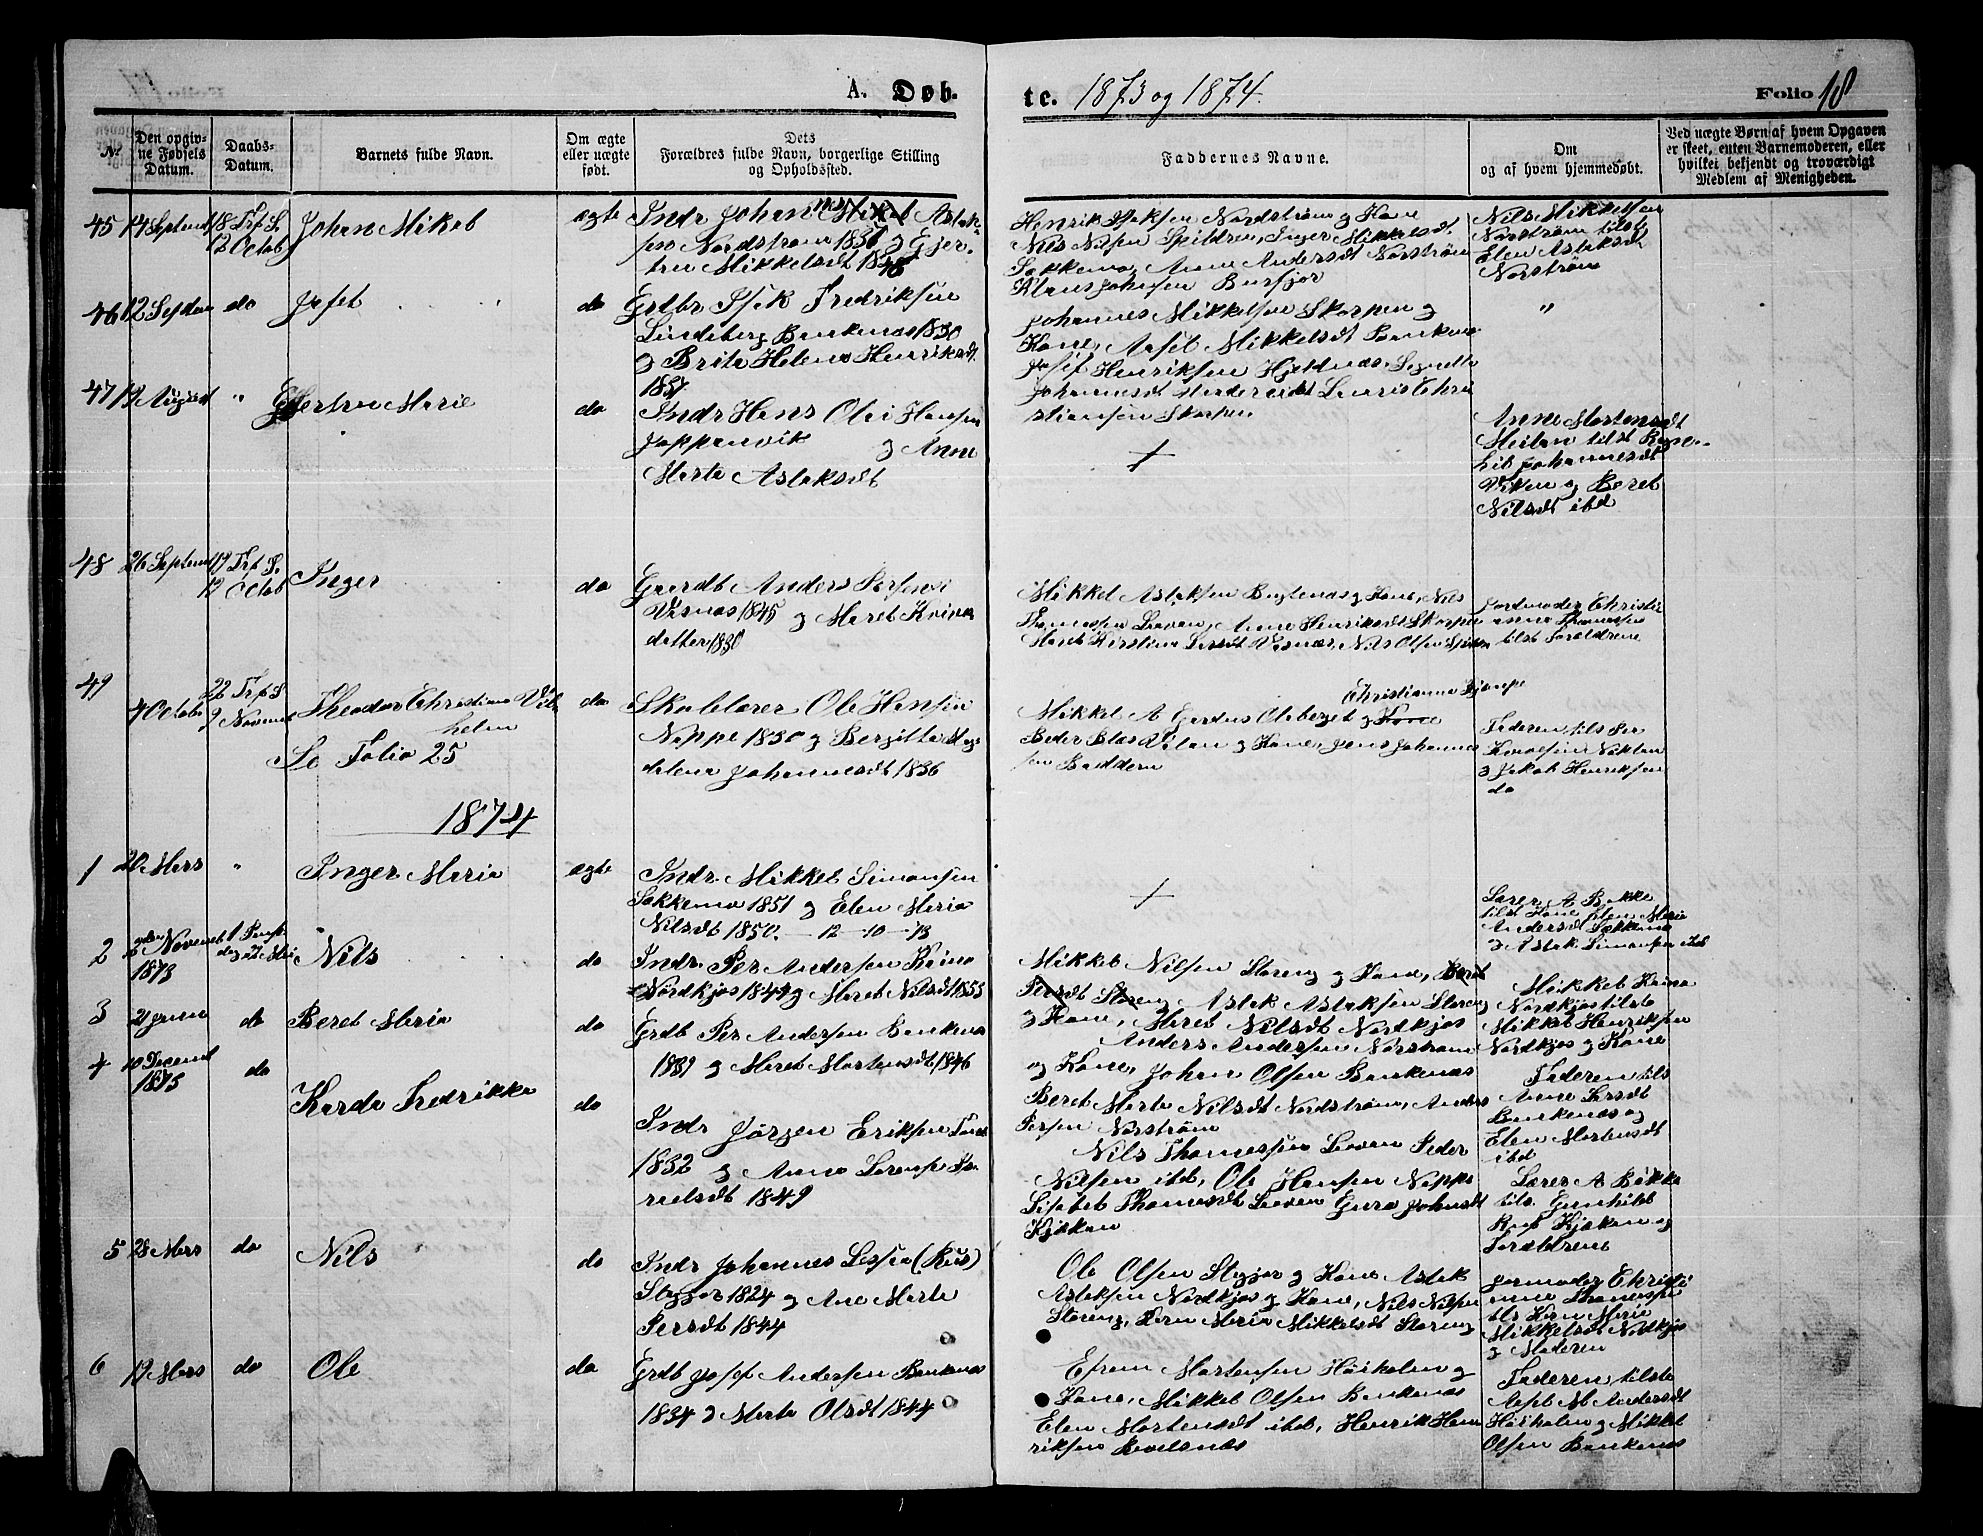 A. Døb.
te. 1873 og 1874.
Folio 18
No.
Den opgiv-
ne Fødsels
Datum.
Daabs-
Datum.
Barnets fulde Navn.
Om ægte
eller uægte
født.
Dets
Forældres fulde Navn, borgerlige Stilling
og Opholdssted.
Faddernes Navne.
Om
og af hvem hjemmedøbt.
Ved uægte Børn af hvem Opgaven
er skeet, enten Barnemoderen, eller
hvilket bekjendt og troværdigt
Medlem af Menigheden.
45
14 Septemb
18 Trf S.
12 Octob
Johan Mikel
ægte
Indr Johan Mikel Aslak-
sen Nordstrøm 1831 og Gjer-
tru Mikkelsdt 1846
Henrik Isaksen Nordstrøm og Kone
Nils Nilsen Spildren, Inger Mikkelsdt
Sakkemo, Anne Andersdt Norstrøm
Klaus Johnsen Bursfjor
Nils Mikkelsen
Norstrøm tilst
Elen Aslaksdt
Norstrøm
46
12 Septem
do
Josef
do
Grdbr Isak Fredriksen
Lindeberg Bankenas 1830
og Brita Helena Henriksdt
1837
Johannes Mikkelsen Skorpen og
Kone, Mikkelsdt Bankenas
Josef Henriksen Hjeldnas, Signelle
Johannesdt Lauris Chri
stiansen Skorpen
"
47
19 August
"
Gjertru Marie
do
Indr Hans Ole Hansen
Joppanvik og Anne
Marte Aslaksdt
+
Anne Mortensdt
tilst
Johannesdt
Viken og Beret
Nilsdt ibd
48
26 Septem
19 Trf S.
12 Octob
Inger
do
Gaardbr Anders Persen
Visnas 1845 og Maret Kvina
datter 1830
Mikkel Aslaksen Bugtenas og Kone, Nils
Thomassen Leven, Anne Henriksdt Skorpen
Maret Kirstine Larsdt Visnas, Nils Olsen Spilden
Jordmoder Christi
anne Thomassen
tilst Foraldrene
49
4 October
22 Trf S
9 Novemb
Theodor Christian Vil
helm
Se Folio 25
do
Skolelærer Ole Hansen
Nappe 1830 og Bergitta Mag
dalena Johannesdt 1836
Christianna Kjempe
Mikkel A Gardus Oleberget og Kone
Peder Blas og Kone, Jens Johannes
sen Baddern
Faderen tils Per
Henriksen
og Jakob Henriksen
do
1874
1
20 Mars
"
Inger Maria
ægte
Indr. Mikkel Simonsen
Sakkemo 1851 og Elen Maria
Nilsdt 1850. — 12 — 10 — 73
+
Lærer A Bakke
tilst Kone, Elen Maria
Andersdt Sakkemo
og Aslak Simonsen ibd
2
Novemb
1873
1 Pint
dag 25 Mai
Nils
do
Indr. Per Andersen Keino
Nordkjos 1849 og Maret Nilsdt 1853
Mikkel Nilsen Storeng og Kone, Beret
Persdt Storeng, Aslak Aslaksen Storeng
og Kone, Maret Nilsdt Nordkjos
Mikkel Keino
Nordkjos tilste
Mikkel Henriksen
Nordkjos og Kone
3
21 Januar
do
Beret Maria
do
Grdb Per Andersen Bankenas
og Maret Mortensdt 1846
Anders Andersen Norstrøm
og Kone, Johan Olsen Bankenas
Beret Marte Nilsdt Nordstrøm, Anders
Persen Norstrøm
Faderen tils
Anne Larsdt
Bankenas og
Elen Mortensdt
ibd
4
10 Decemb
1875
do
Karda Fredrikke
do
Indr Jørgen Eriksen
1832 og Anne Lorense
rielsdt 1849
Nils Thomassen Leven Peder
Nilsen ibd, Ole Hansen Nappe
Lisabet Thomasdt Leven Guro Johnsdt
Kjækan
Lærer A Bakke
tils. Gunhild
Rut Kjækan og
Foraldrene
5
28 Mars
do
Nils
do
Indr Johannes Larsen (Rus)
Stegjor 1824 og Ane Marte
Persdt 1844
Ole Olsen Stegjor og Kone, Aslak
Aslaksen Nordkjos og Kone, Nils Nilsen
Storeng, Karn Maria Mikkelsdt Storeng
Jormoder Christi
anne Thomassen
tils Karn Maria
Mikkelsdt Nordkjos
og Moderen
6
19 Mars
do
Ole
do
Grdb Josef Andersen Bankenas
1834 og Marte Olsdt 1844
Efrem Mortensen Høiholm og
Kone, Mikkel Olsen Bankenas
Elen Mortensdt ibd, Henrik Hen
riksen
Faderen tilste
M Andersdt
Høiholm og Mikkel
Olsen Bankenas